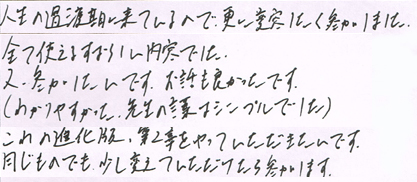 人生の過渡期に来ているので、更に変容したく参加しました。
全て使えるすばらしい内容でした。
又、参加したいです。お話も良かったです。
(わかりやすかった、先生の話はシンプルでした)
これの進化版、第2章をやっていただきたいです。
同じものでも、少し変えていただけたら参加します。